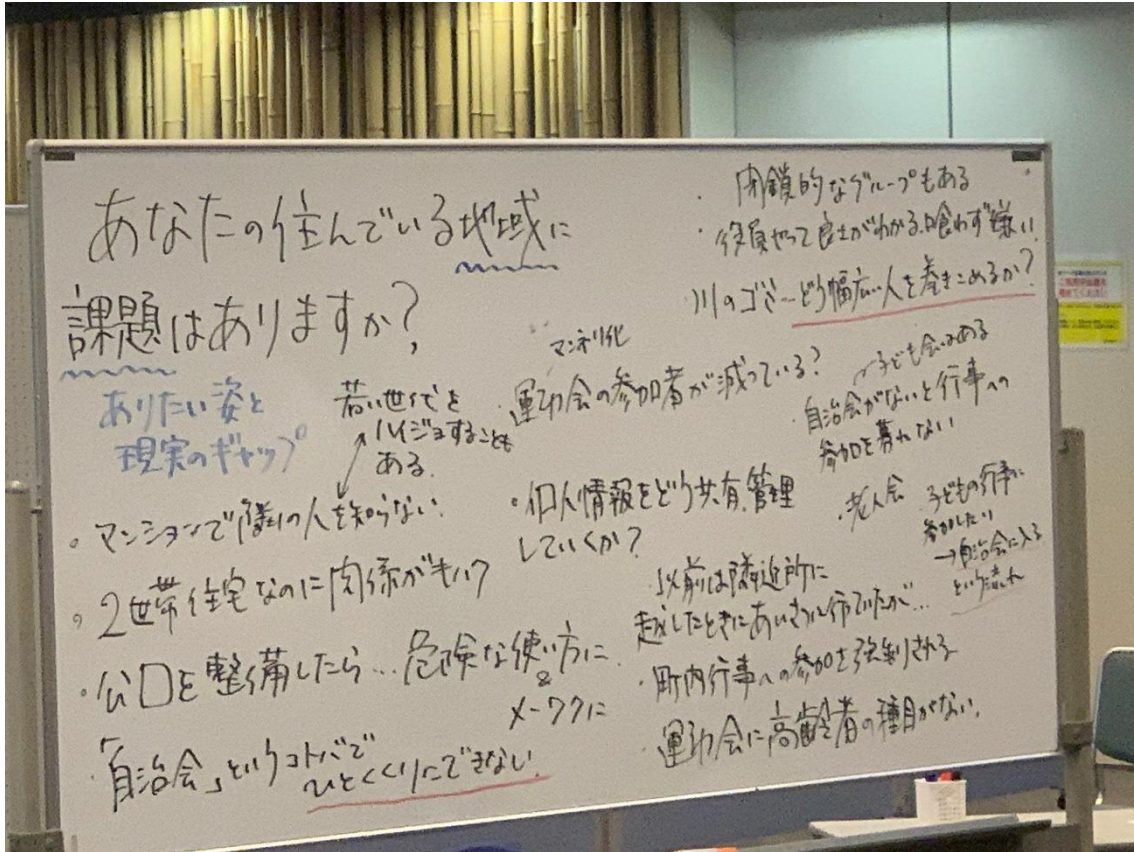 あなたの住んでいる地域に
課題はありますか?
ありたい姿と
現実のギャップ
若い世代を
ハイジョすることも
ある
・マンションで隣の人を知らない
・2世帯住宅なのに関係がキハク
・公口を整備したら…危険な使い方に
&
メーワクに
・「自治会」というコトバで
ひとくくりにできない
マンネリ化
運動会の参加者が減っている?
・個人情報をどう共有、管理
していくか?
・以前は隣近所に
越したときにあいさつに行っていたが…
・町内行事への参加を強制される
・運動会に高齢者の種目がない
・閉鎖的なグループもある
・役員やって良さがわかる、喰わず嫌い
・川のゴミ…どう幅広い人を巻きこめるか?
子ども会はある
・自治会がないと行事への
参加を募れない
・老人会
子どもの行事に
参加したい
→自治会に入る
という流れ